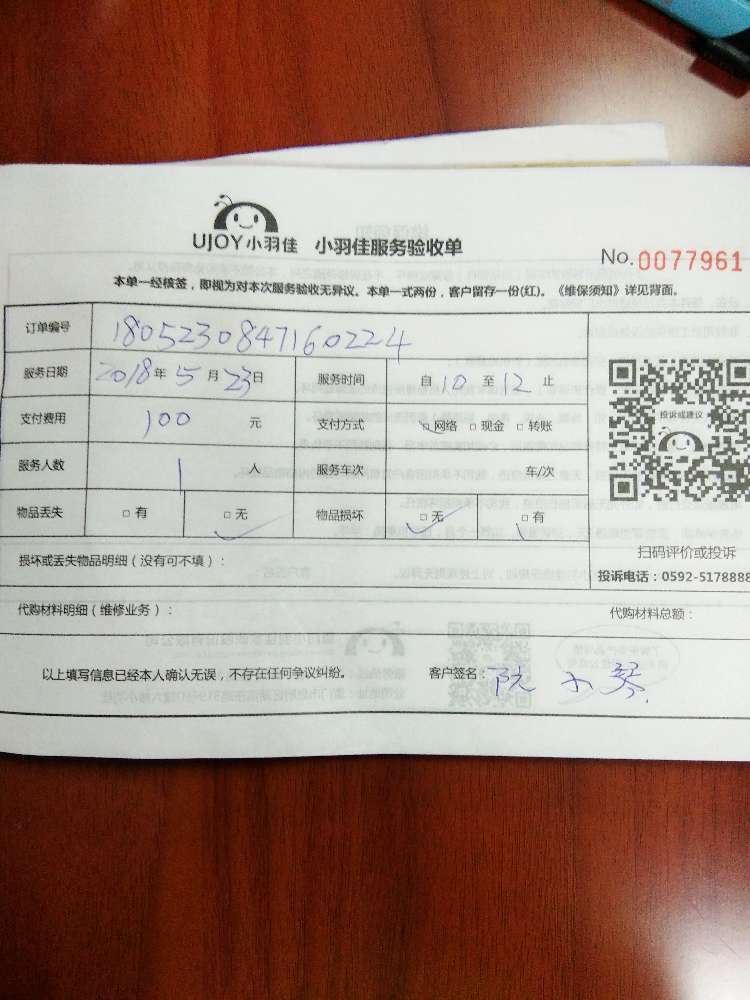 UJOY小羽佳 小羽佳服务验收单
No.0077961
本单一经核签，即视为对本次服务验收无异议。本单一式两份，客户留存一份(红)。《维保须知》详见背面。
订单编号 1805230847160224
服务日期 2018年5月23日 服务时间 自10至12止
投诉或建议
支付费用 100 元 支付方式 □网络 □现金 □转账
服务人数 1 人 服务车次 车/次
物品丢失 □有 □无 物品损坏 □无 □有
扫码评价或投诉
损坏或丢失物品明细（没有可不填）：
投诉电话：0592-5178888
代购材料明细（维修业务）： 代购材料总额：
以上填写信息已经本人确认无误，不存在任何争议纠纷。 客户签名：阮小琴